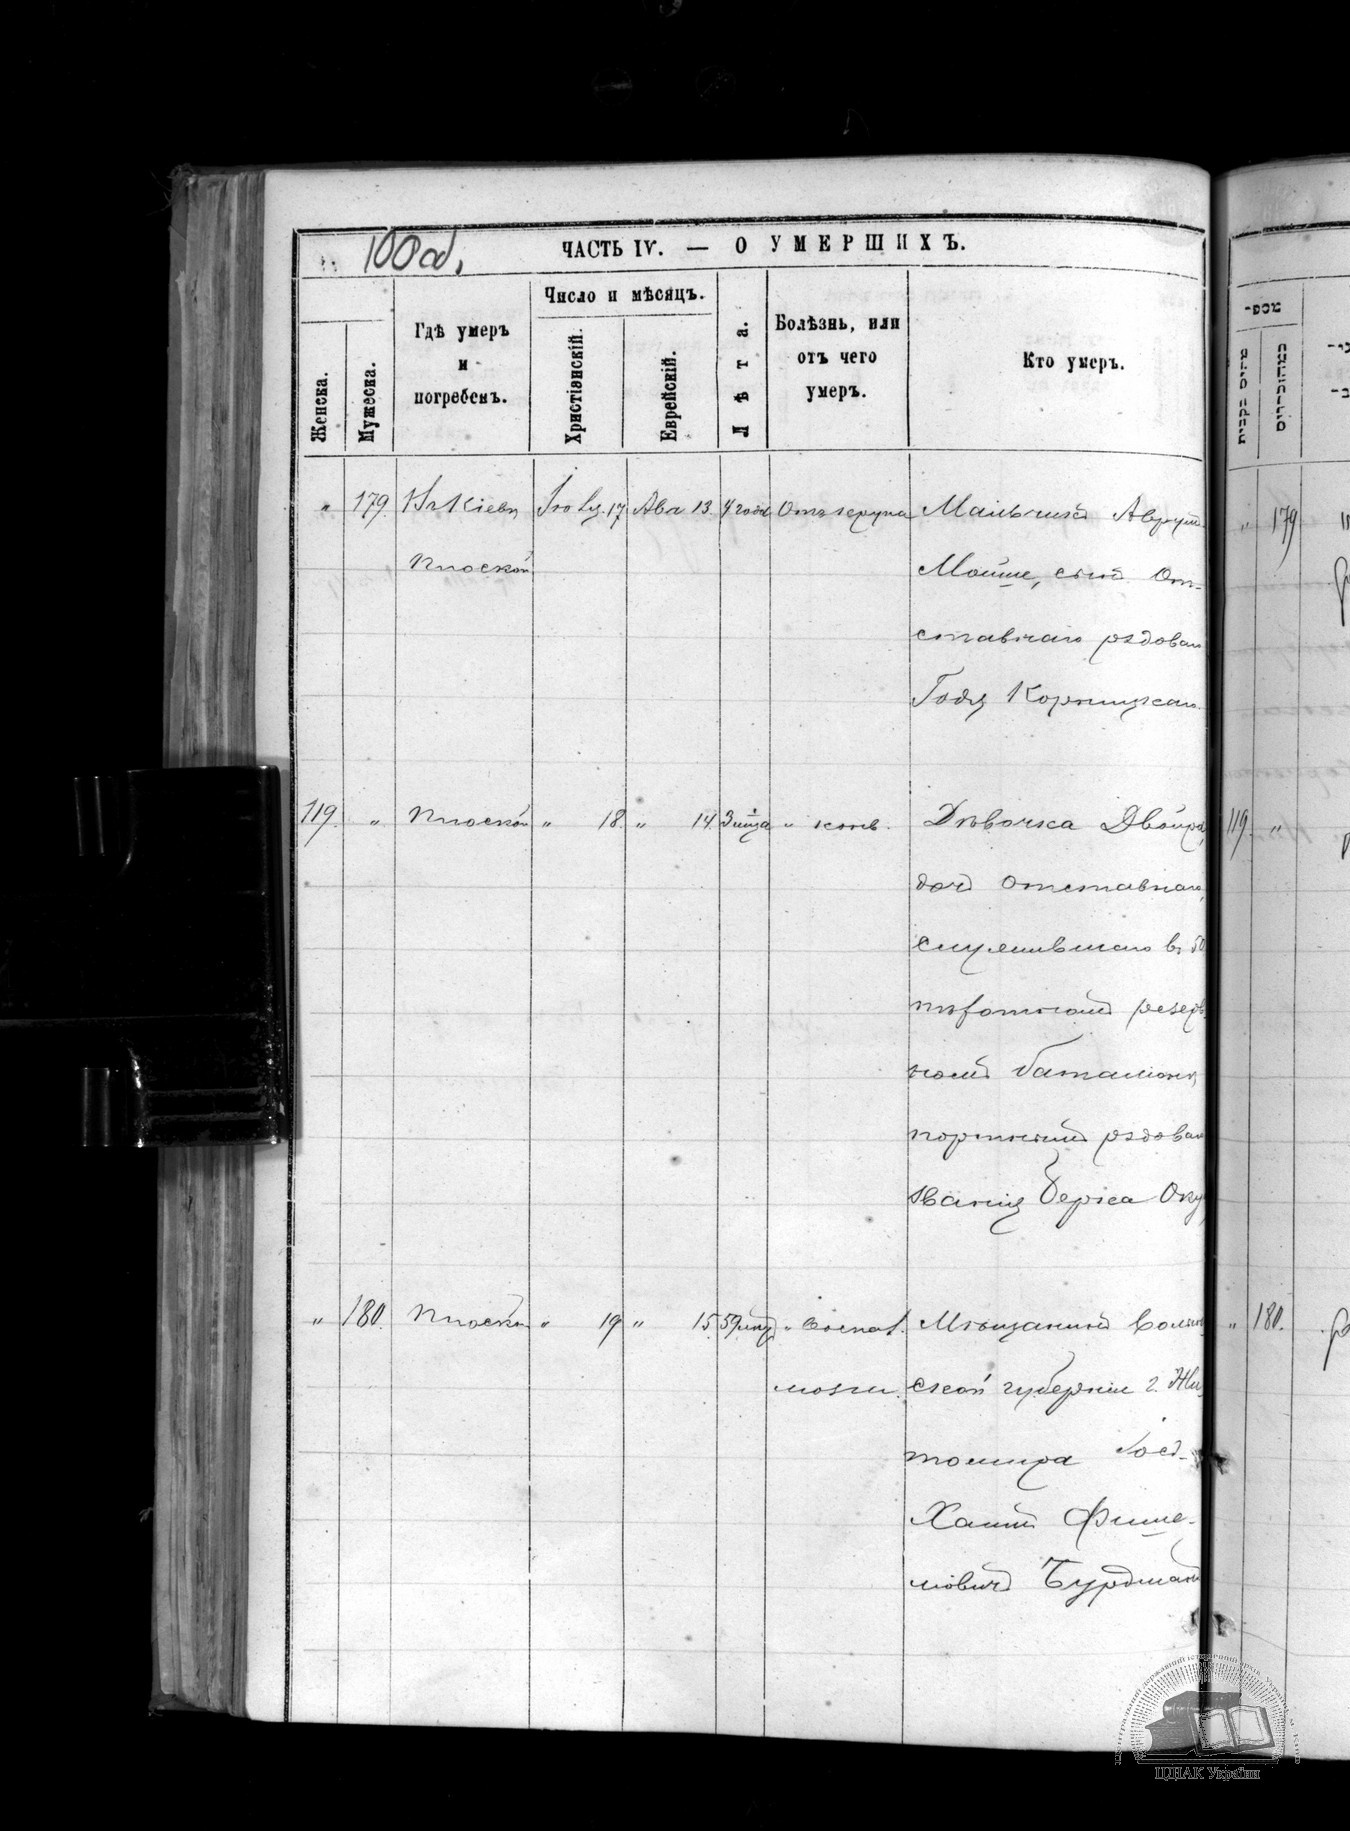 100 об.
ЧАСТЬ IV. — О УМЕРШИХЪ.
Женска.
Мужеска.
Гдѣ умеръ
и
погребенъ.
Число и мѣсяцъ.
Христіанскій.
Еврейскій.
Лѣта.
Болѣзнь, или
отъ чего
умеръ.
Кто умеръ.
" 179. Въ Кіевѣ Іюля 17 Авъ 13. 4 года Отъ крупа Мальчикъ Аврумъ
Плоской Мойше, сынъ От-
ставнаго рядоваго
Годя Корницкаго
119. " Плоской " 18. " 14. 3 м-ца " конв. Дѣвочка Двойра,
дочь отставнаго,
служившаго въ 50
пѣхотномъ резерв-
номъ баталіонѣ
портной рядоваго
званія Берка Оку
" 180. Плоской " 19 " 15. 59 " воспал. Мѣщанинъ Волын-
мозги. ской губерніи г. Жи-
томира Іосъ-
Хаимъ Фише-
лювичъ Бурдманъ
מספר
מהים נקבות
מהזכרים
" 179
119. "
" 180.
ЦДІАК України